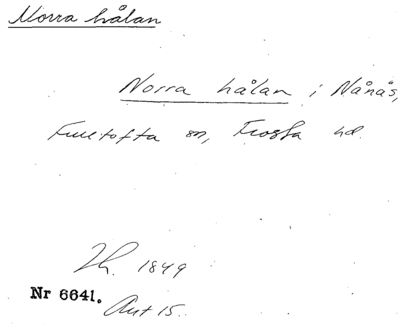 Norra hålan
Norra hålan i Nånås,
Fulltofta sn, Frosta hd.
Lh. 1849
Nr 6641.
Akt 15.